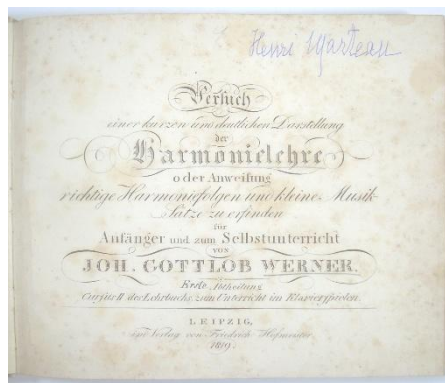 Henri Marteau
Versuch
einer kurzen und deutlichen Darstellung
der
Harmonielehre
oder Anweisung
richtige Harmoniefolgen und kleine Musik-
Sätze zu erfinden
für
Anfänger und zum Selbstunterricht
von
JOH. GOTTLOB WERNER.
Erste Abtheilung
Cursus II des Lehrbuchs zum Unterricht im Klavierspielen.
LEIPZIG,
im Verlag von Friedrich Hofmeister.
1819.